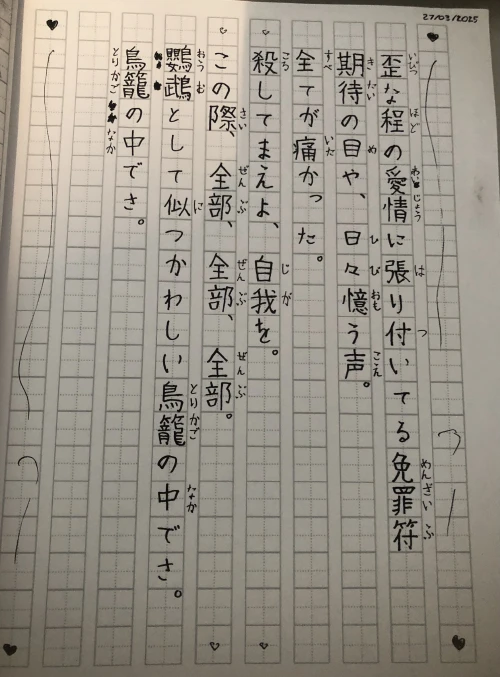 27/03/2025
歪な程の愛情に張り付いてる免罪符
期待の目や、日々憶う声。
全てが痛かった。
殺してまえよ、自我を。
この際、全部、全部、全部。
鸚鵡として似つかわしい鳥籠の中でさ。
鳥籠の中でさ。